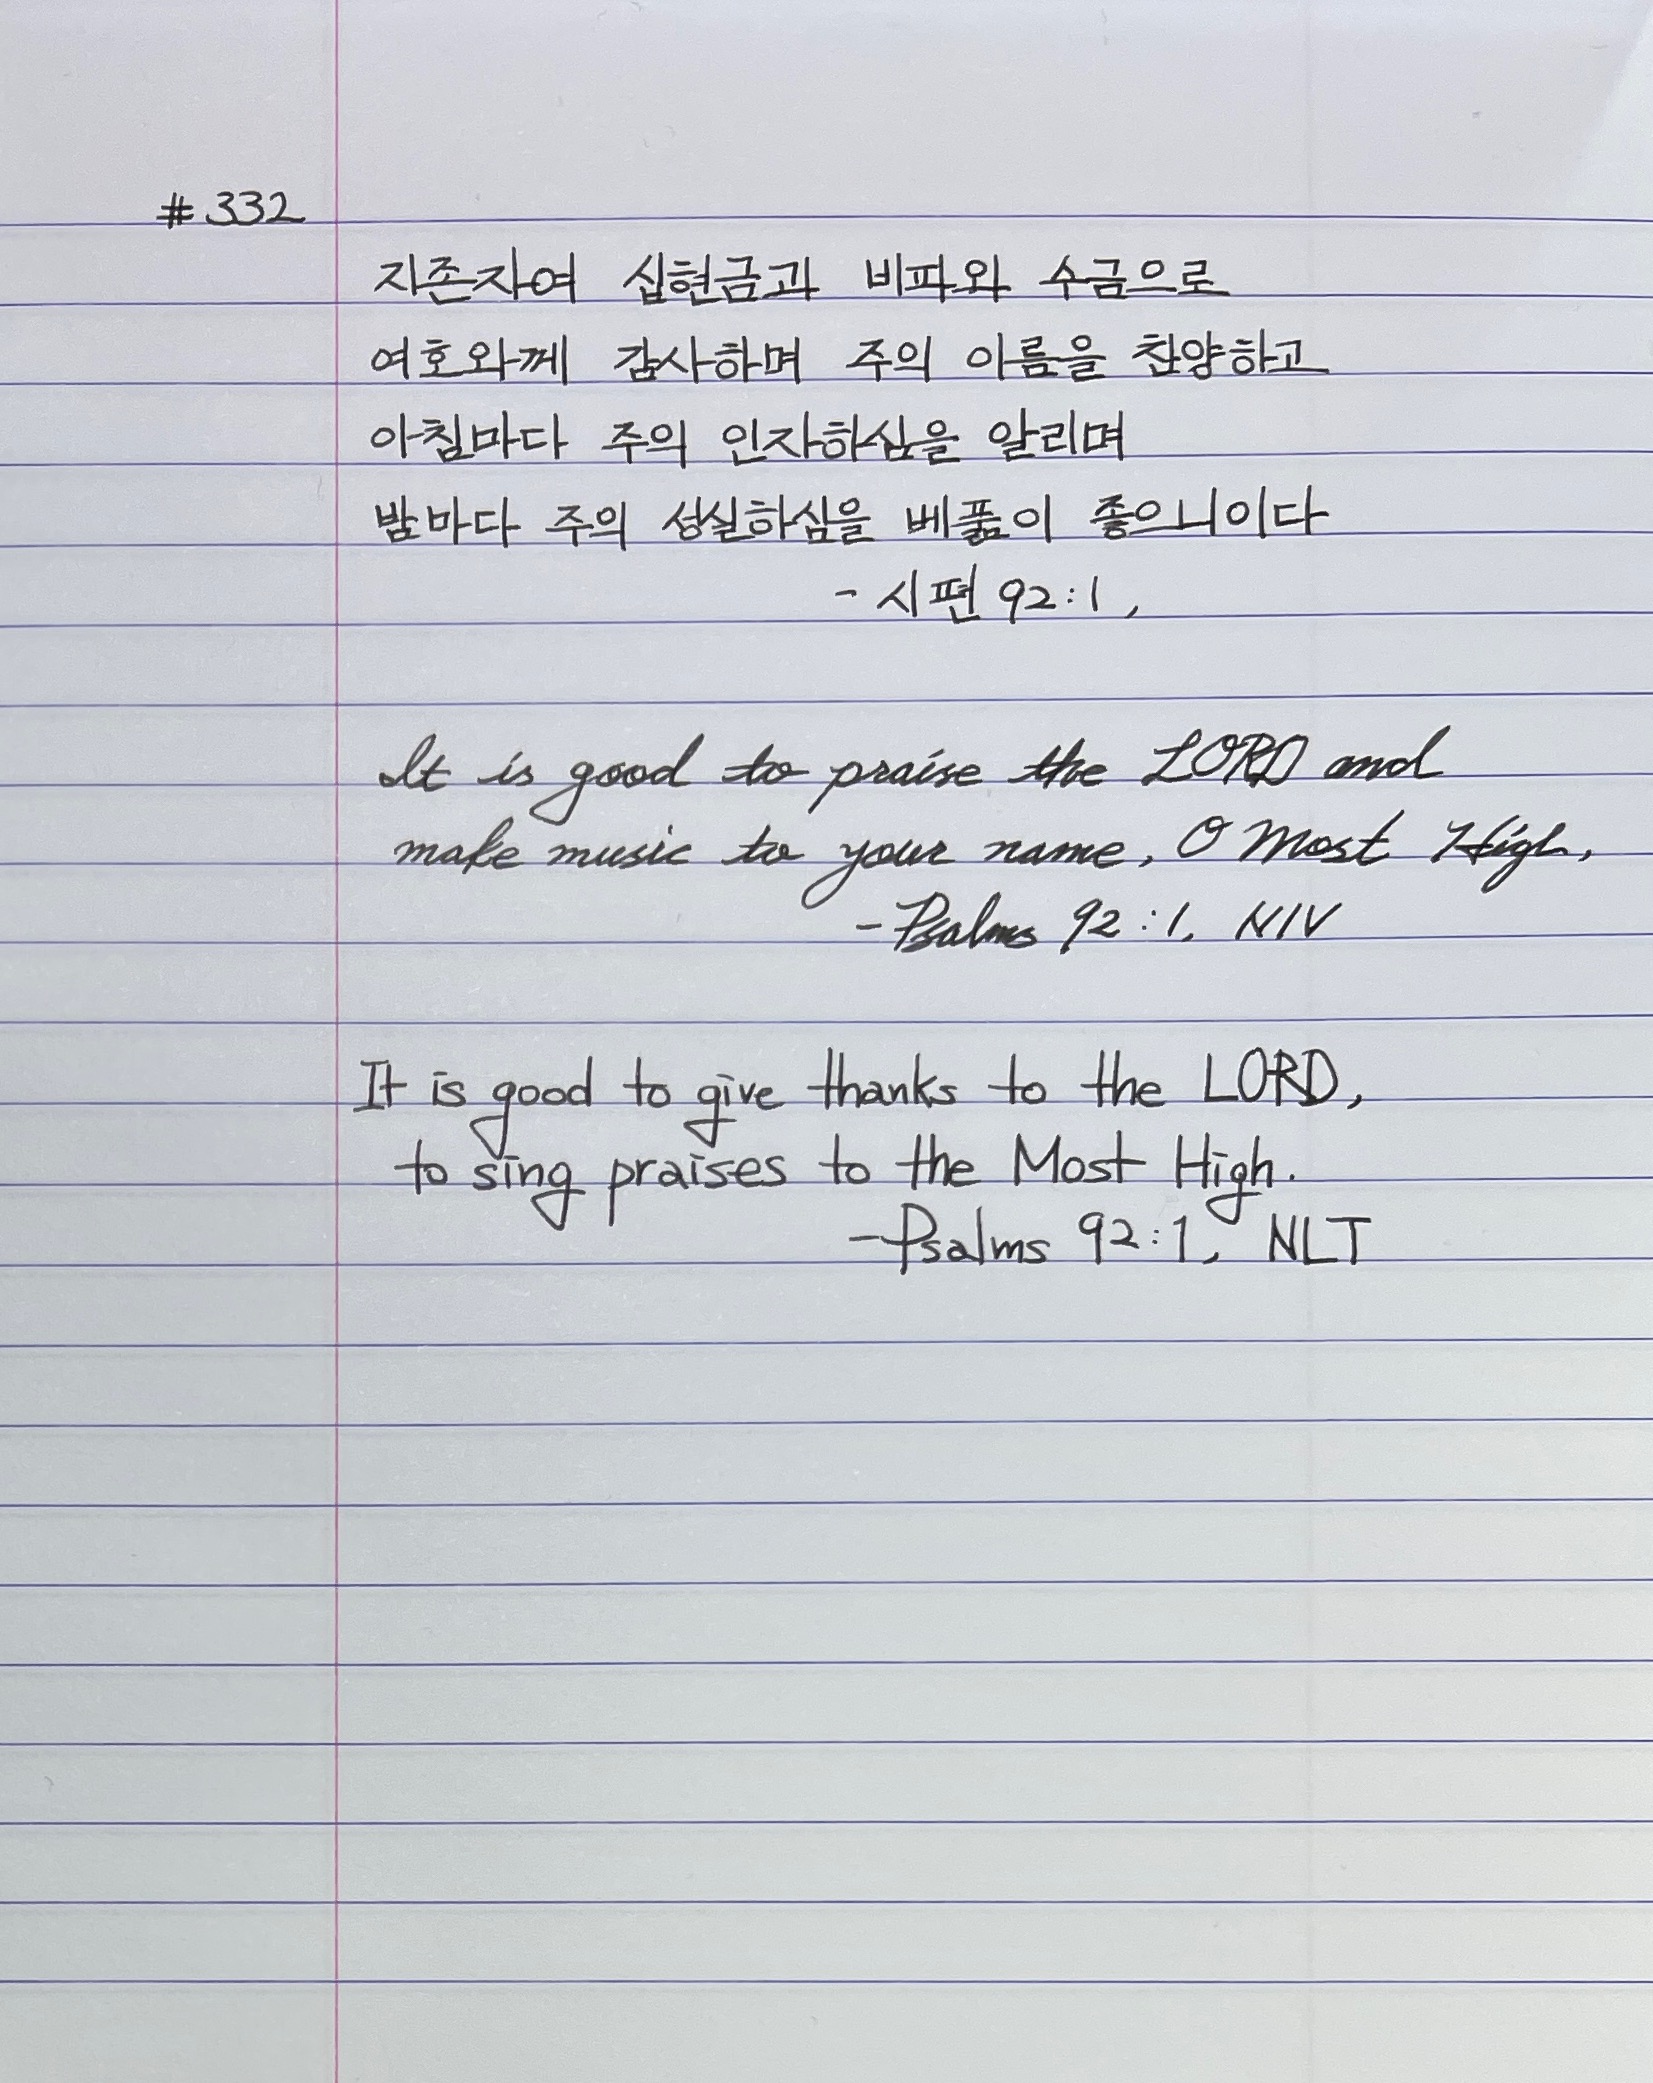 #332
지존자여 십현금과 비파와 수금으로
여호와께 감사하며 주의 이름을 찬양하고
아침마다 주의 인자하심을 알리며
밤마다 주의 성실하심을 베풂이 좋으니이다
- 시편 92:1,
It is good to praise the LORD and
make music to your name, O Most High,
- Psalms 92:1, NIV
It is good to give thanks to the LORD,
to sing praises to the Most High.
- Psalms 92:1, NLT